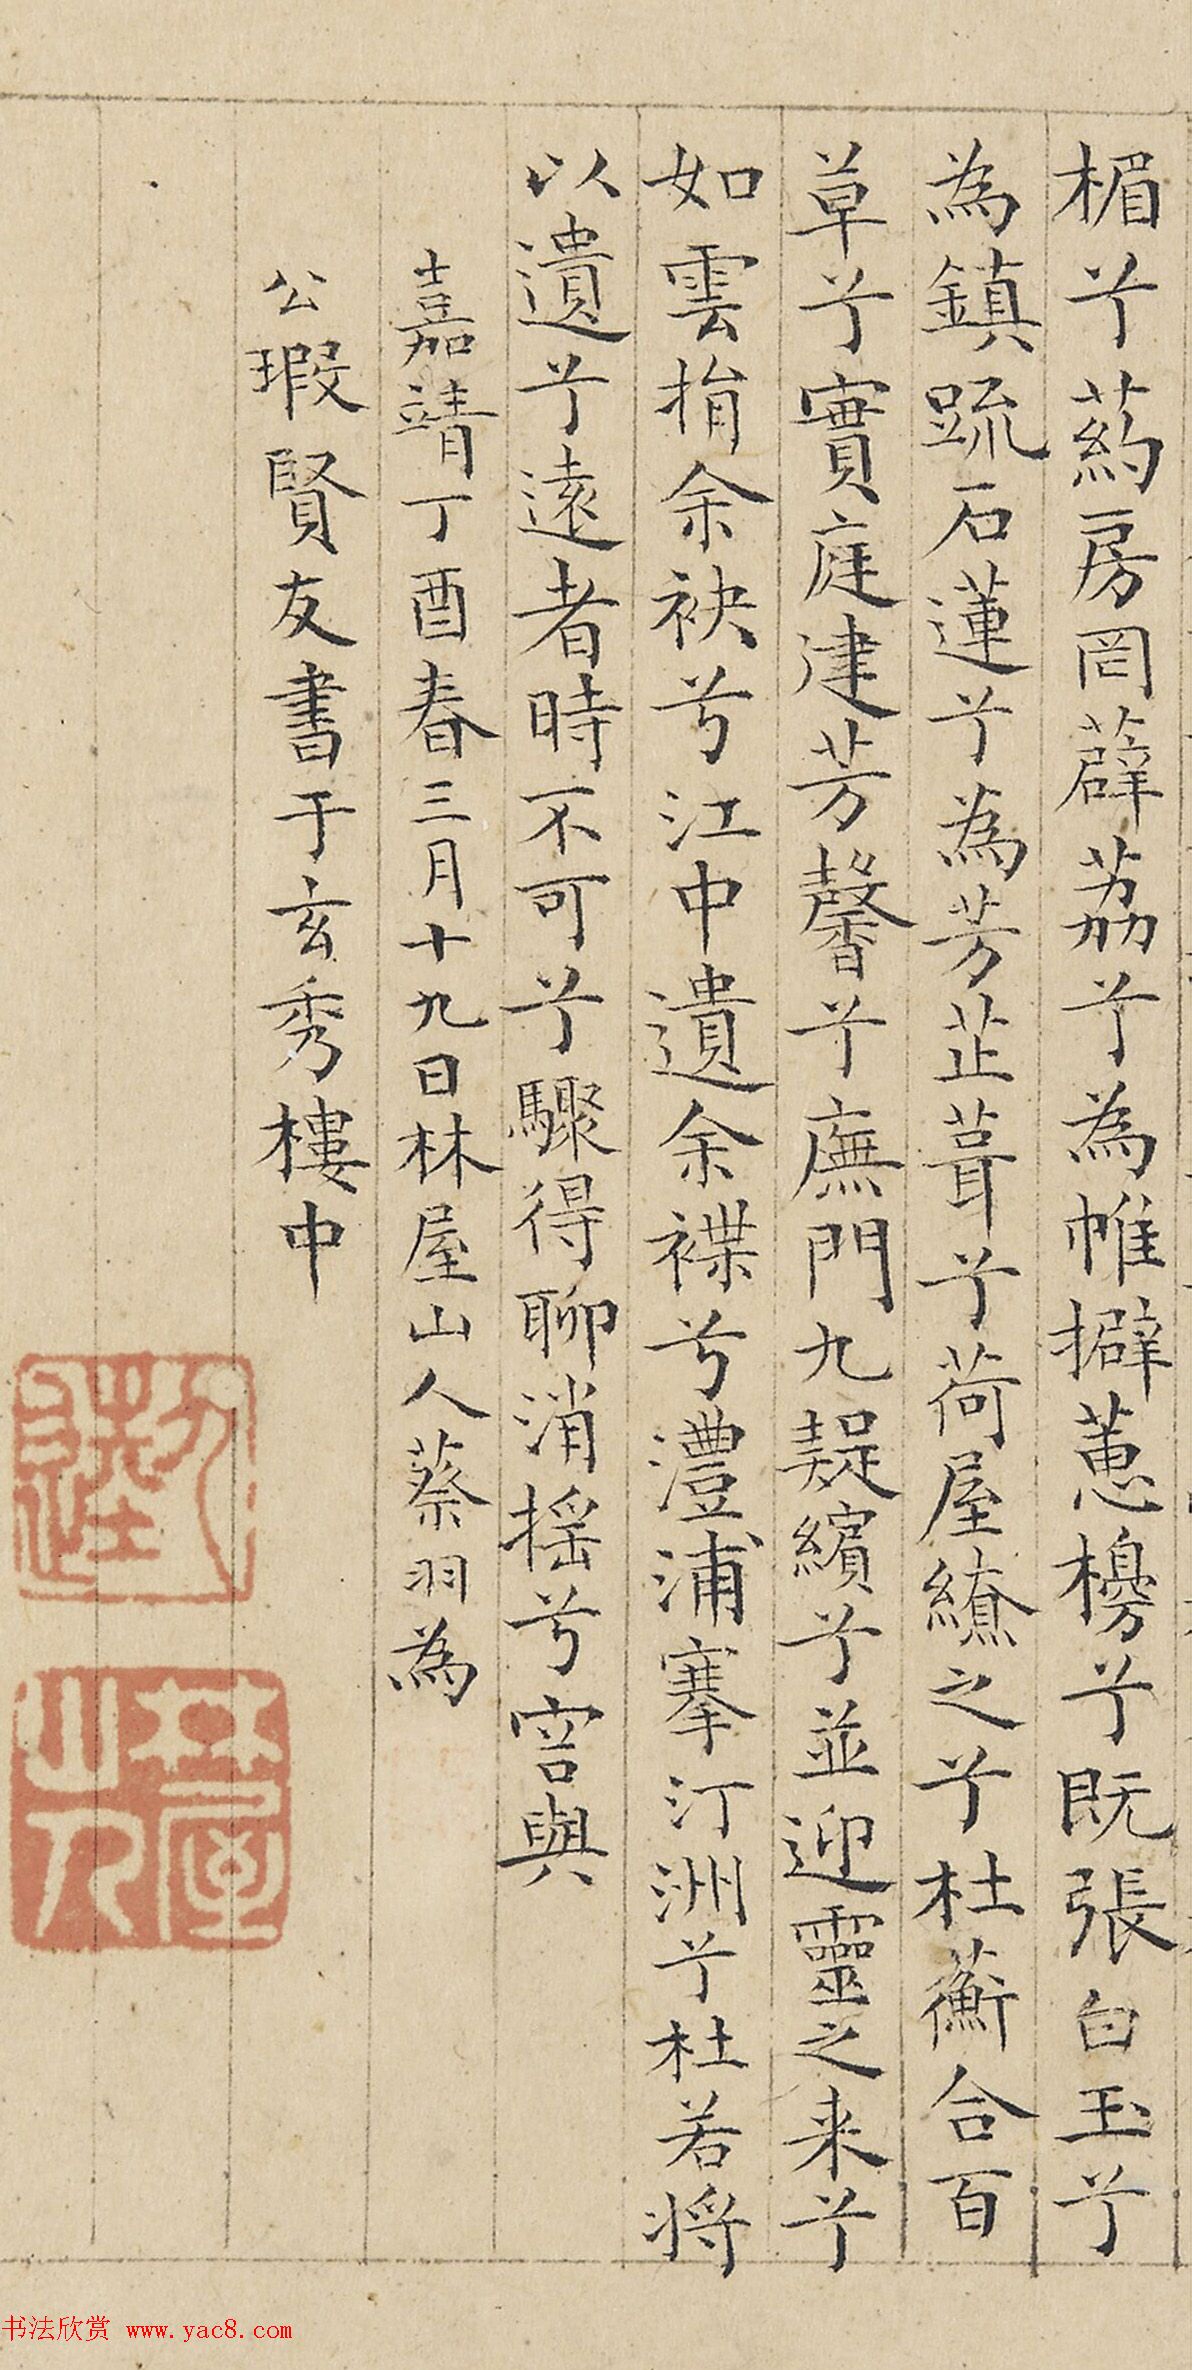 楣兮葯房罔薜荔兮為帷擗蕙櫋兮既張白玉兮
為鎮疏石蓮兮為芳芷葺兮荷屋繚之兮杜蘅合百
草兮實庭建芳馨兮廡門九疑繽兮並迎靈之来兮
如雲捐余袂兮江中遺余褋兮澧浦搴汀洲兮杜若将
以遺兮遠者時不可兮驟得聊消摇兮容與
嘉靖丁酉春三月十九日林屋山人蔡羽為
公瑕賢友書于玄秀樓中
林屋山人
书法欣赏 www.yac8.com